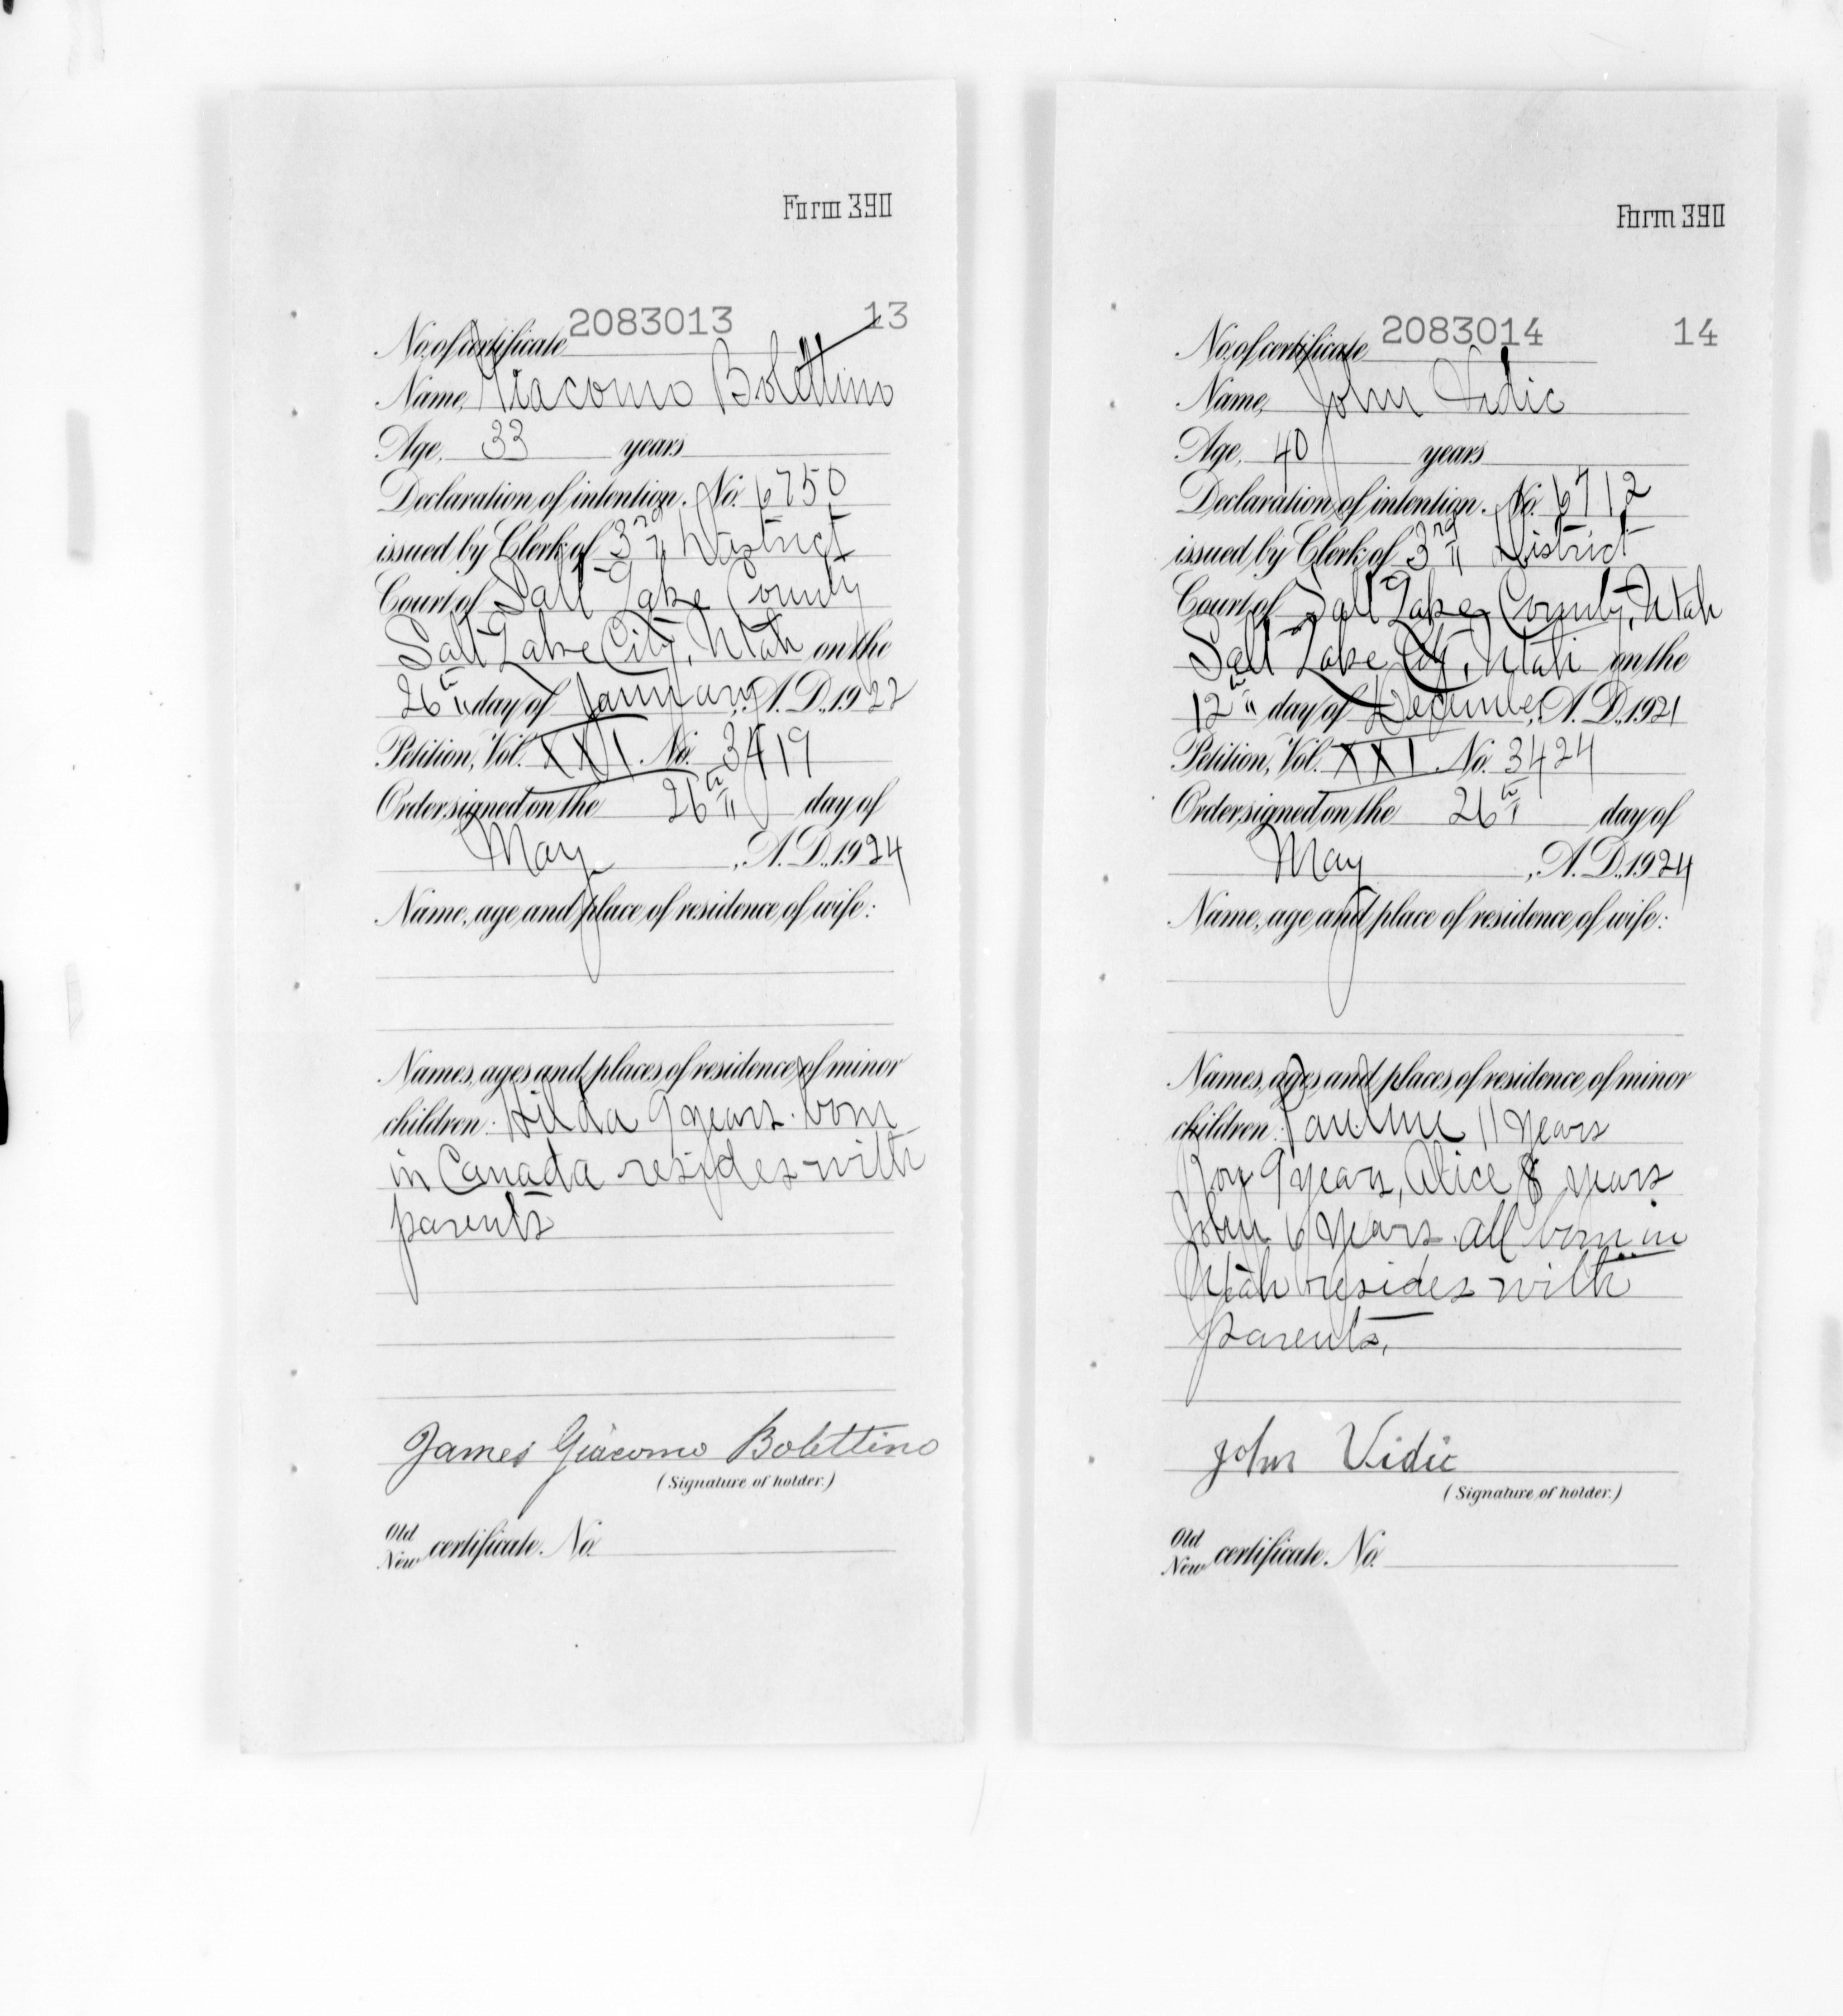 Form 390
No. of certificate 2083013 13
Name, Giacomo Bolettino
Age, 33 years
Declaration of intention. No. 6750
issued by Clerk of 3rd District
Court of Salt Lake County
Salt Lake City, Utah on the
26th day of January, A. D., 1922
Petition, Vol. XXI No. 3419
Order signed on the 26th day of
May, A. D., 1924
Name, age and place of residence of wife:
Names, ages and places of residence of minor
children: Hilda 9 years. born
in Canada resides with
parents
James Giacomo Bolettino
(Signature of holder.)
Old
New certificate. No.
Form 390
No. of certificate 2083014 14
Name, John Vidic
Age, 40 years
Declaration of intention. No. 6712
issued by Clerk of 3rd District
Court of Salt Lake County, Utah
Salt Lake City, Utah on the
12th day of December, A. D., 1921
Petition, Vol. XXI No. 3424
Order signed on the 26th day of
May, A. D., 1924
Name, age and place of residence of wife:
Names, ages and places of residence of minor
children: Pauline 11 years
Roy 9 years, Alice 8 years
John 6 years. all born in
Utah resides with
parents.
John Vidic
(Signature of holder.)
Old
New certificate. No.